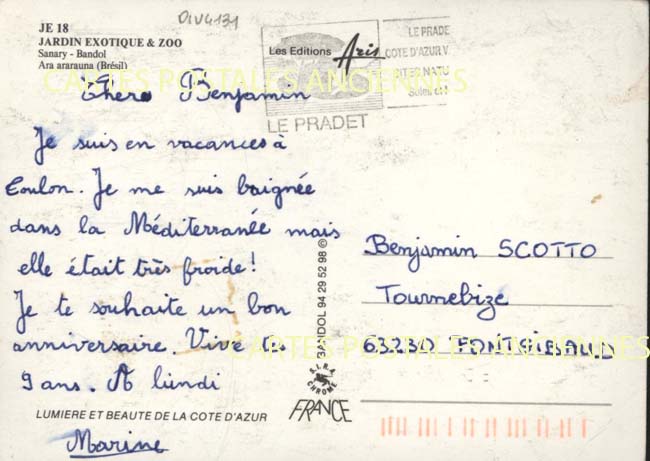 DIV4131
JE 18
JARDIN EXOTIQUE & ZOO
Sanary - Bandol
Ara ararauna (Brésil)
Les Editions Aris
LE PRADET
LE PRADE
COTE D'AZUR V
SITE NATU
Soleil
CARTES POSTALES ANCIENNES
Chers Benjamin
Je suis en vacances à
Toulon. Je me suis baignée
dans la Méditerranée mais
elle était très froide!
Je te souhaite un bon
anniversaire. Vive les
9 ans. A lundi
Marine
LUMIERE ET BEAUTE DE LA COTE D'AZUR
BANDOL 94 29 52 98 ©
S.I.R.A.
CHROME
FRANCE
Benjamin SCOTTO
Tournebize
63230 PONTGIBAUD
CARTES POSTALES ANCIENNES